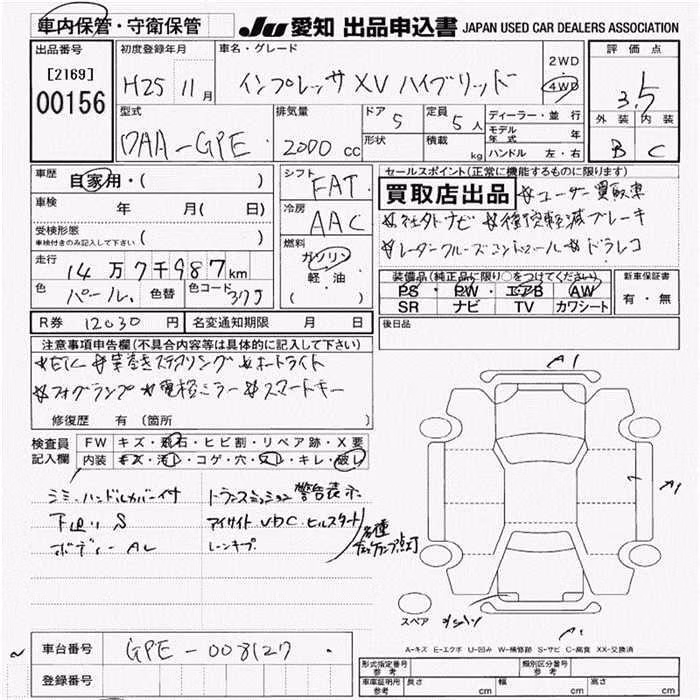 車内保管・守衛保管
JU 愛知 出品申込書 JAPAN USED CAR DEALERS ASSOCIATION
出品番号
[2169]
00156
初度登録年月
H25 11月
車名・グレード
インプレッサ XV ハイブリッド
2WD
4WD
評価点
3.5
外装 内装
B C
型式
DAA-GPE
排気量
2000 cc
ドア
5
定員
5人
形状
積載
kg
ディーラー・並行
モデル年式 年
ハンドル 左・右
車歴
自家用・( )
車検 年 月( 日)
受検形態
車検付きのみ記入して下さい ( )
走行
14万7千987km
色 パール 色替 色コード 37J
シフト
FAT
冷房
AAC
燃料
ガソリン
軽・油
( )
セールスポイント(正常に機能するものに限ります)
買取店出品 ☆ユーザー買取車
☆社外ナビ ☆衝突軽減ブレーキ
☆レーダークルーズコントロール ☆ドラレコ
装備品(純正品に限り○をつけてください)
PS・PW・エアB AW
SR ナビ TV カワシート
新車保証書
有・無
R券 12030円 名変通知期限 月 日
後日品
注意事項申告欄(不具合内容等は具体的に記入して下さい)
☆ETC ☆革巻きステアリング ☆オートライト
☆フォグランプ ☆電格ミラー ☆スマートキー
修復歴 有(箇所 )
検査員記入欄
FW キズ・飛石・ヒビ割・リペア跡・X要
内装 キズ・汚レ・コゲ・穴・スレ・キレ・破レ
シミ・ハンドルカバー付
下廻り S
ボディー AL
トランスミッション警告表示
アイサイト VDC ヒルスタート
レーンキープ
各種チェックランプ点灯
A1
A1
スペア
A-キズ E-エクボ U-凹み W-補修跡 S-サビ C-腐食 XX-交換済
車台番号 GPE-003127
登録番号
形式指定番号 参考
類別区分番号 参考
車庫証明用 参考 長さ cm 幅 cm 高さ cm